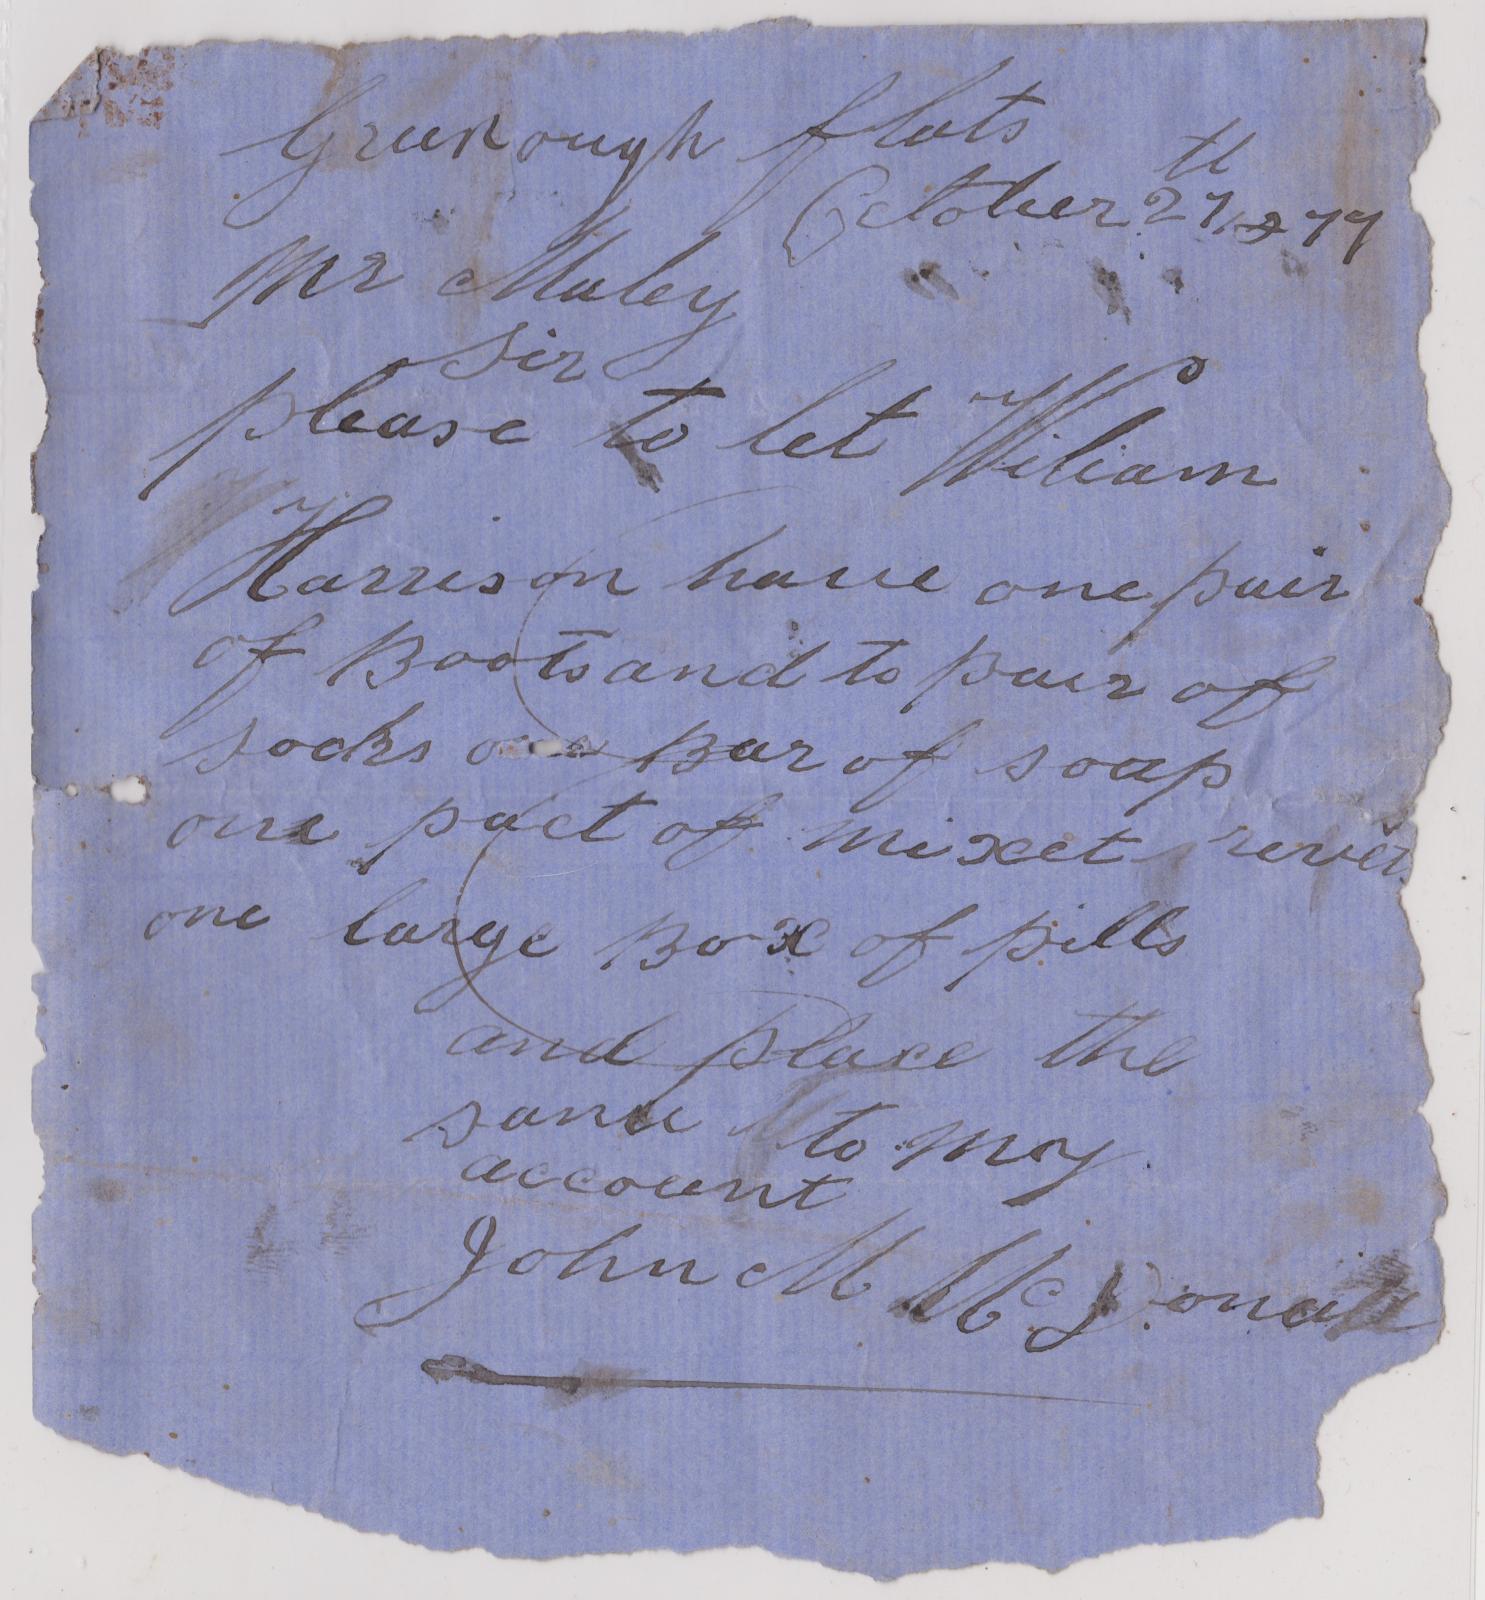 Greenough flats
October 27th 1879
Mr Maley
Sir
please to let Wiliam
Harrison have one pair
of Boots and to pair of
socks one Bar of soap
one pact of mixet
one large Box of pills
and place the
same to my
account
John M McDonald